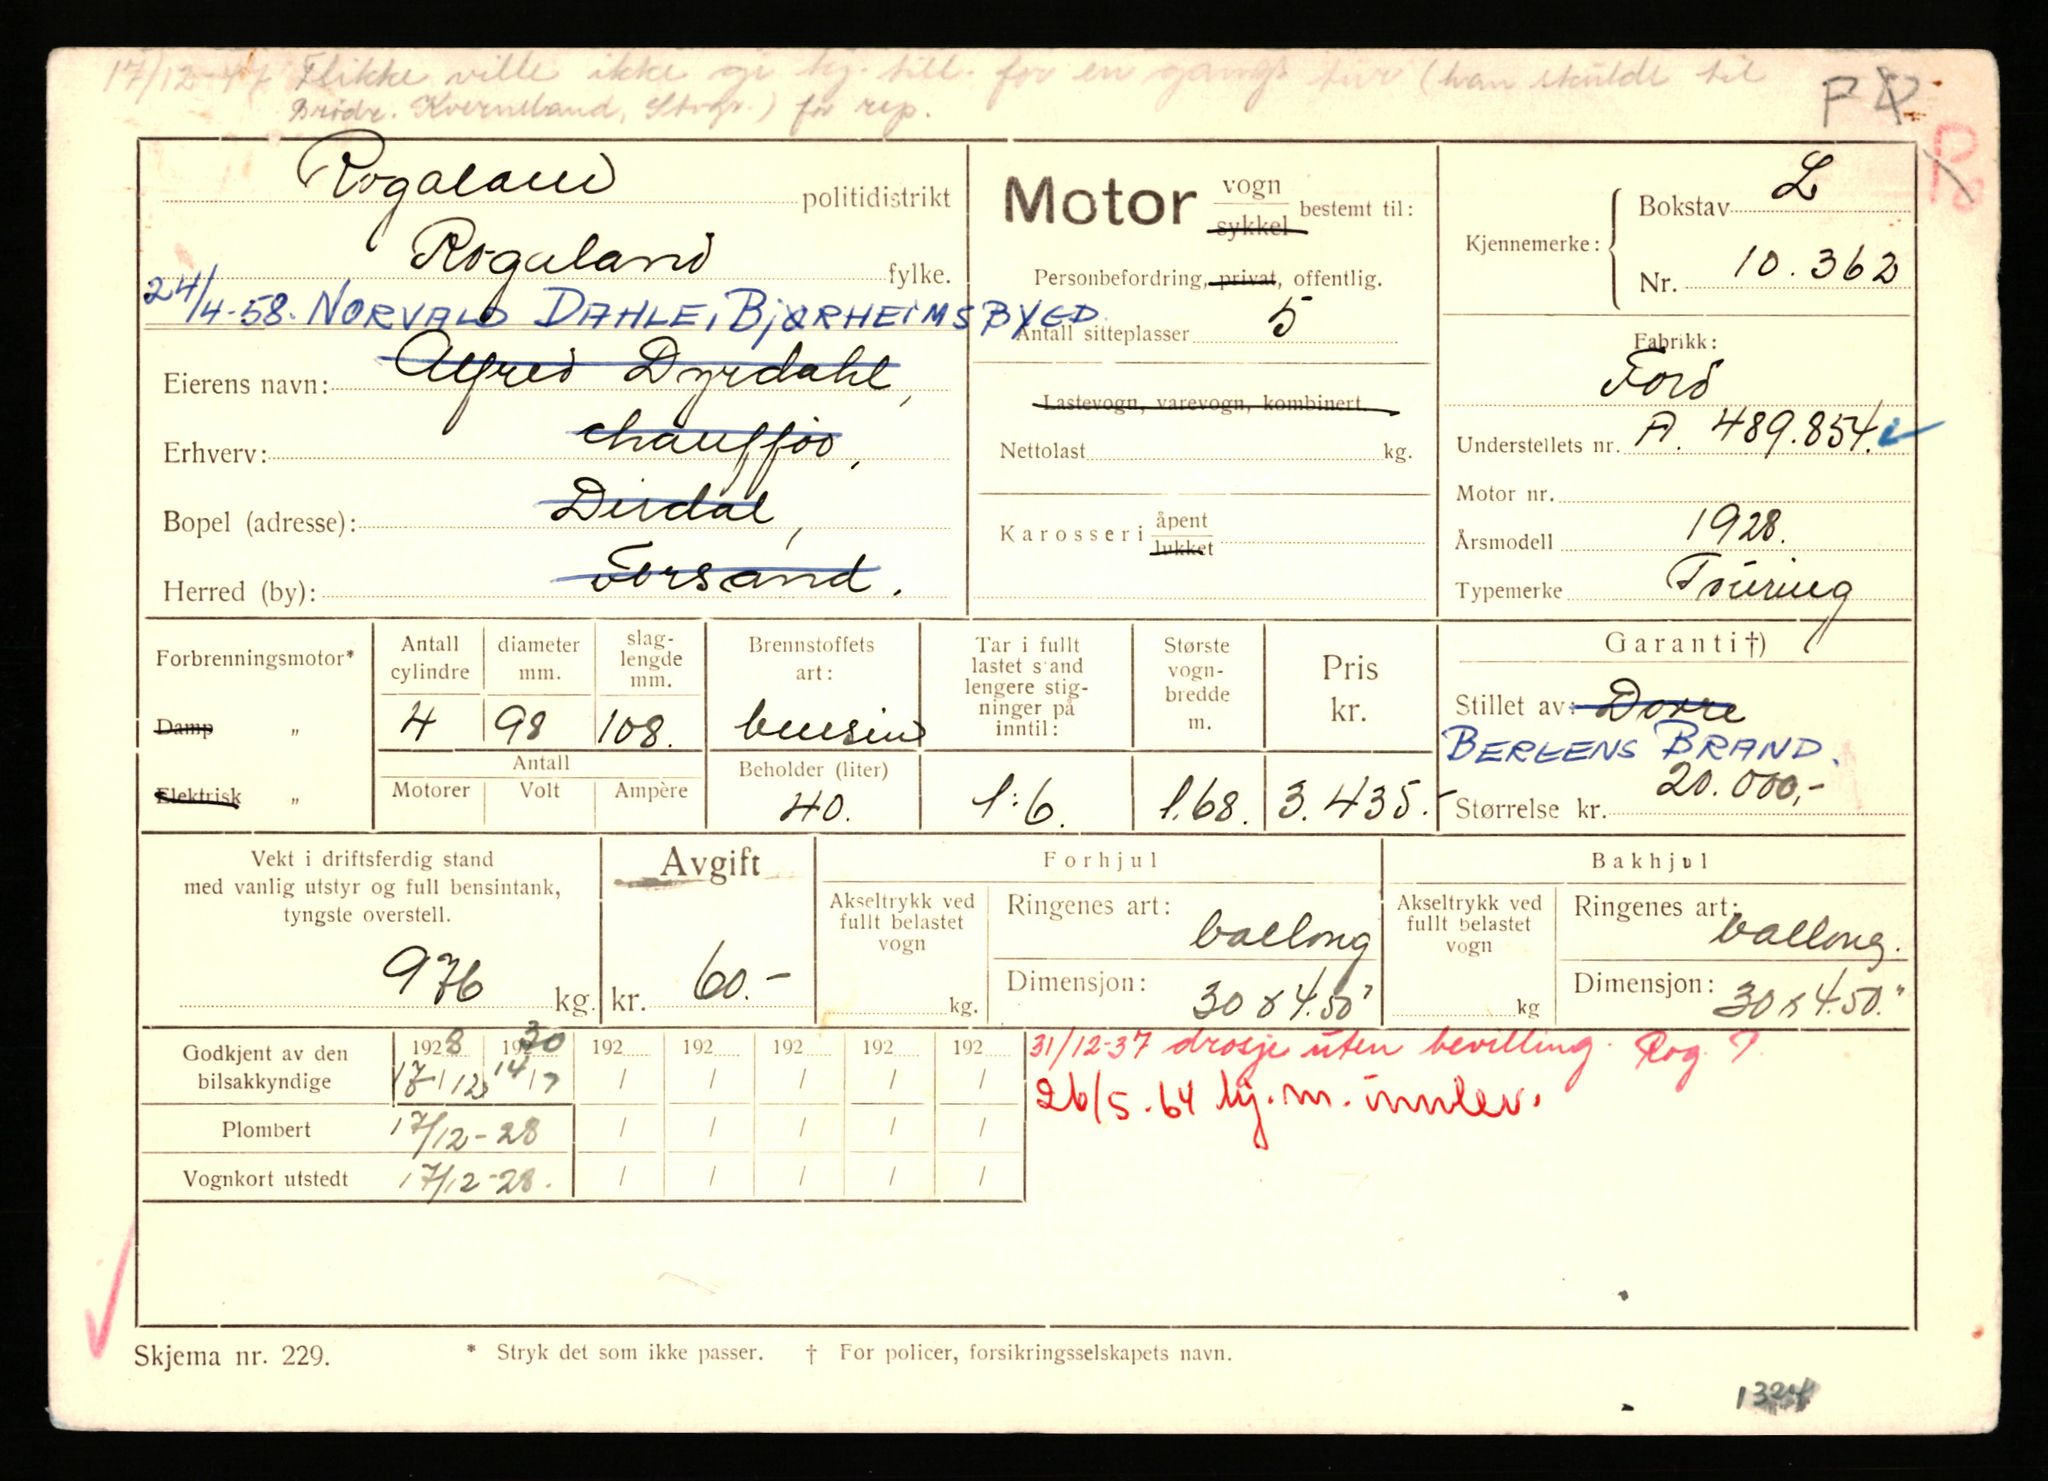 17/12-47 Flikke ville ikke gi kj. till. for en gangs tur (han skulde til
Brødr. Kverneland, Stvgr.) for rep.
Rogaland politidistrikt
Rogaland fylke.
24/4-58. NORVALD DAHLE, BJØRHEIMSBYGD.
Eierens navn: Alfred Dyrdahl,
Erhverv: chauffør,
Bopel (adresse): Dirdal,
Herred (by): Forsand.
Motor vogn
sykkel bestemt til:
Personbefordring, privat, offentlig.
Antall sitteplasser 5
Lastevogn, varevogn, kombinert
Nettolast kg.
Karosseri åpent
lukket
Kjennemerke: Bokstav L
Nr. 10.362
Fabrikk:
Ford
Understellets nr. A. 489.854.
Motor nr.
Årsmodell 1928.
Typemerke Touring
Forbrenningsmotor*
Damp "
Elektrisk "
Antall cylindre 4
diameter mm. 98
slag-
lengde
mm. 108.
Antall
Motorer Volt Ampère
Brennstoffets
art:
bensin
Beholder (liter)
40.
Tar i fullt
lastet stand
lengere stig-
ninger på
inntil:
1:6.
Største
vogn-
bredde
m.
1.68.
Pris
kr.
3.435.-
Garanti †)
Stillet av: Dovre
BERGENS BRAND.
Størrelse kr. 20.000,-
Vekt i driftsferdig stand
med vanlig utstyr og full bensintank,
tyngste overstell.
976 kg.
Avgift
kr. 60.-
Forhjul
Akseltrykk ved
fullt belastet
vogn
kg.
Ringenes art:
ballong
Dimensjon:
30 x 4.50"
Bakhjul
Akseltrykk ved
fullt belastet
vogn
kg
Ringenes art:
ballong.
Dimensjon:
30 x 4.50."
Godkjent av den
bilsakkyndige
1928 1930 192 192 192 192 192
17/12 14/7 / / / / /
Plombert 17/12-28 / / / / /
Vognkort utstedt 17/12-28. / / / / /
31/12-37 drosje uten bevilling. Rog. 7
26/5.64 kj.m. innlev.
Skjema nr. 229.
* Stryk det som ikke passer. † For policer, forsikringsselskapets navn.
1324